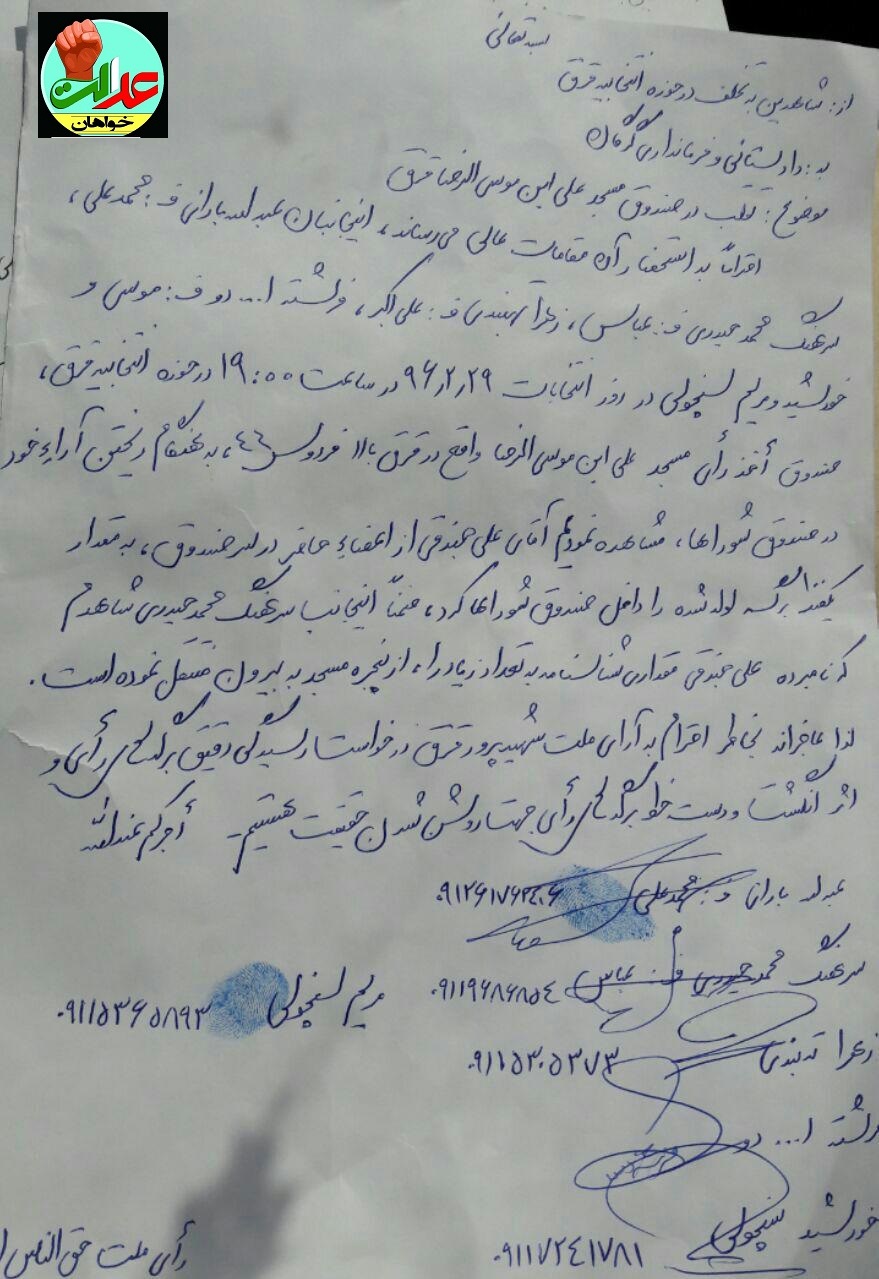 عدالت
خواهان
بسمه تعالی
از: شاهدین به تخلف در حوزه انتخابیه قرق
به: دادستانی و فرمانداری گرگان
موضوع: تقلب در صندوق مسجد علی ابن موسی الرضا قرق
احتراماً به استحضار آن مقامات عالی می‌رساند، اینجانبان عبداله بارانی ف: محمدعلی،
سرهنگ محمد حیدری ف: عباس، زهرا ف: علی اکبر، فرشته ا... دو ف: موسی و
خورشید و مریم سنچولی در روز انتخابات ۹۶٫۲٫۲۹ در ساعت ۱۹:۰۰ در حوزه انتخابیه قرق،
صندوق أخذ رأی مسجد علی ابن موسی الرضا واقع در قرق بالا فردوسی ۴۶، به هنگام ریختن آراء خود
در صندوق شوراها، مشاهده نمودیم آقای علی جندقی از اعضاء حاضر در سر صندوق، به مقدار
برگه لوله شده را داخل صندوق شوراها کرد، ضمناً اینجانب سرهنگ محمد حیدری شاهدم
که نامبرده علی جندقی مقداری شناسنامه به تعداد زیاد را، از پنجره مسجد به بیرون منتقل نموده است.
لذا عاجزاند بخاطر احترام به آرای ملت شهیدپرور قرق درخواست رسیدگی دقیق برگه‌های رأی و
اثر انگشت و دست خط برگه‌های رأی جهت روشن شدن حقیقت هستیم - أجرکم عندالله
عبداله بارانی ف: محمدعلی ۰۹۱۲۶۱۷۶۲۴۰۶
سرهنگ محمد حیدری ف: عباس ۰۹۱۱۹۶۸۶۸۵۴
مریم سنچولی ۰۹۱۱۵۳۶۵۸۹۳
زهرا ۰۹۱۱۵۳۰۵۳۷۳
فرشته ا... دو
خورشید سنچولی ۰۹۱۱۷۲۴۱۷۸۱
رأی ملت حق الناس